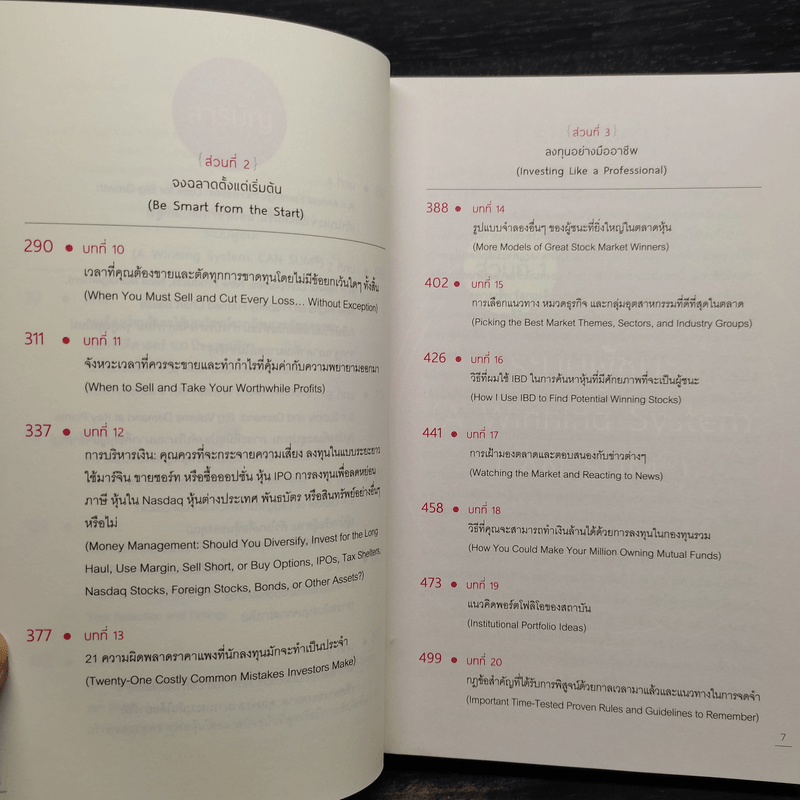 {ส่วนที่ 2}
จงฉลาดตั้งแต่เริ่มต้น
(Be Smart from the Start)
290 • บทที่ 10
เวลาที่คุณต้องขายและตัดทุกการขาดทุนโดยไม่มีข้อยกเว้นใดๆ ทั้งสิ้น
(When You Must Sell and Cut Every Loss... Without Exception)
311 • บทที่ 11
จังหวะเวลาที่ควรจะขายและทำกำไรที่คุ้มค่ากับความพยายามออกมา
(When to Sell and Take Your Worthwhile Profits)
337 • บทที่ 12
การบริหารเงิน: คุณควรที่จะกระจายความเสี่ยง ลงทุนในแบบระยะยาว
ใช้มาร์จิน ขายชอร์ท หรือซื้อออปชั่น หุ้น IPO การลงทุนเพื่อลดหย่อน
ภาษี หุ้นใน Nasdaq หุ้นต่างประเทศ พันธบัตร หรือสินทรัพย์อย่างอื่นๆ
หรือไม่
(Money Management: Should You Diversify, Invest for the Long
Haul, Use Margin, Sell Short, or Buy Options, IPOs, Tax Shelters,
Nasdaq Stocks, Foreign Stocks, Bonds, or Other Assets?)
377 • บทที่ 13
21 ความผิดพลาดราคาแพงที่นักลงทุนมักจะทำเป็นประจำ
(Twenty-One Costly Common Mistakes Investors Make)
{ส่วนที่ 3}
ลงทุนอย่างมืออาชีพ
(Investing Like a Professional)
388 • บทที่ 14
รูปแบบจำลองอื่นๆ ของผู้ชนะที่ยิ่งใหญ่ในตลาดหุ้น
(More Models of Great Stock Market Winners)
402 • บทที่ 15
การเลือกแนวทาง หมวดธุรกิจ และกลุ่มอุตสาหกรรมที่ดีที่สุดในตลาด
(Picking the Best Market Themes, Sectors, and Industry Groups)
426 • บทที่ 16
วิธีที่ผมใช้ IBD ในการค้นหาหุ้นที่มีศักยภาพที่จะเป็นผู้ชนะ
(How I Use IBD to Find Potential Winning Stocks)
441 • บทที่ 17
การเฝ้ามองตลาดและตอบสนองกับข่าวต่างๆ
(Watching the Market and Reacting to News)
458 • บทที่ 18
วิธีที่คุณจะสามารถทำเงินล้านได้ด้วยการลงทุนในกองทุนรวม
(How You Could Make Your Million Owning Mutual Funds)
473 • บทที่ 19
แนวคิดพอร์ตโฟลิโอของสถาบัน
(Institutional Portfolio Ideas)
499 • บทที่ 20
กฎข้อสำคัญที่ได้รับการพิสูจน์ด้วยกาลเวลามาแล้วและแนวทางในการจดจำ
(Important Time-Tested Proven Rules and Guidelines to Remember)
7